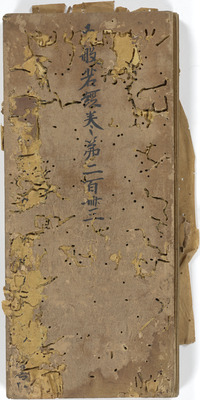 般若經卷第二百卌三